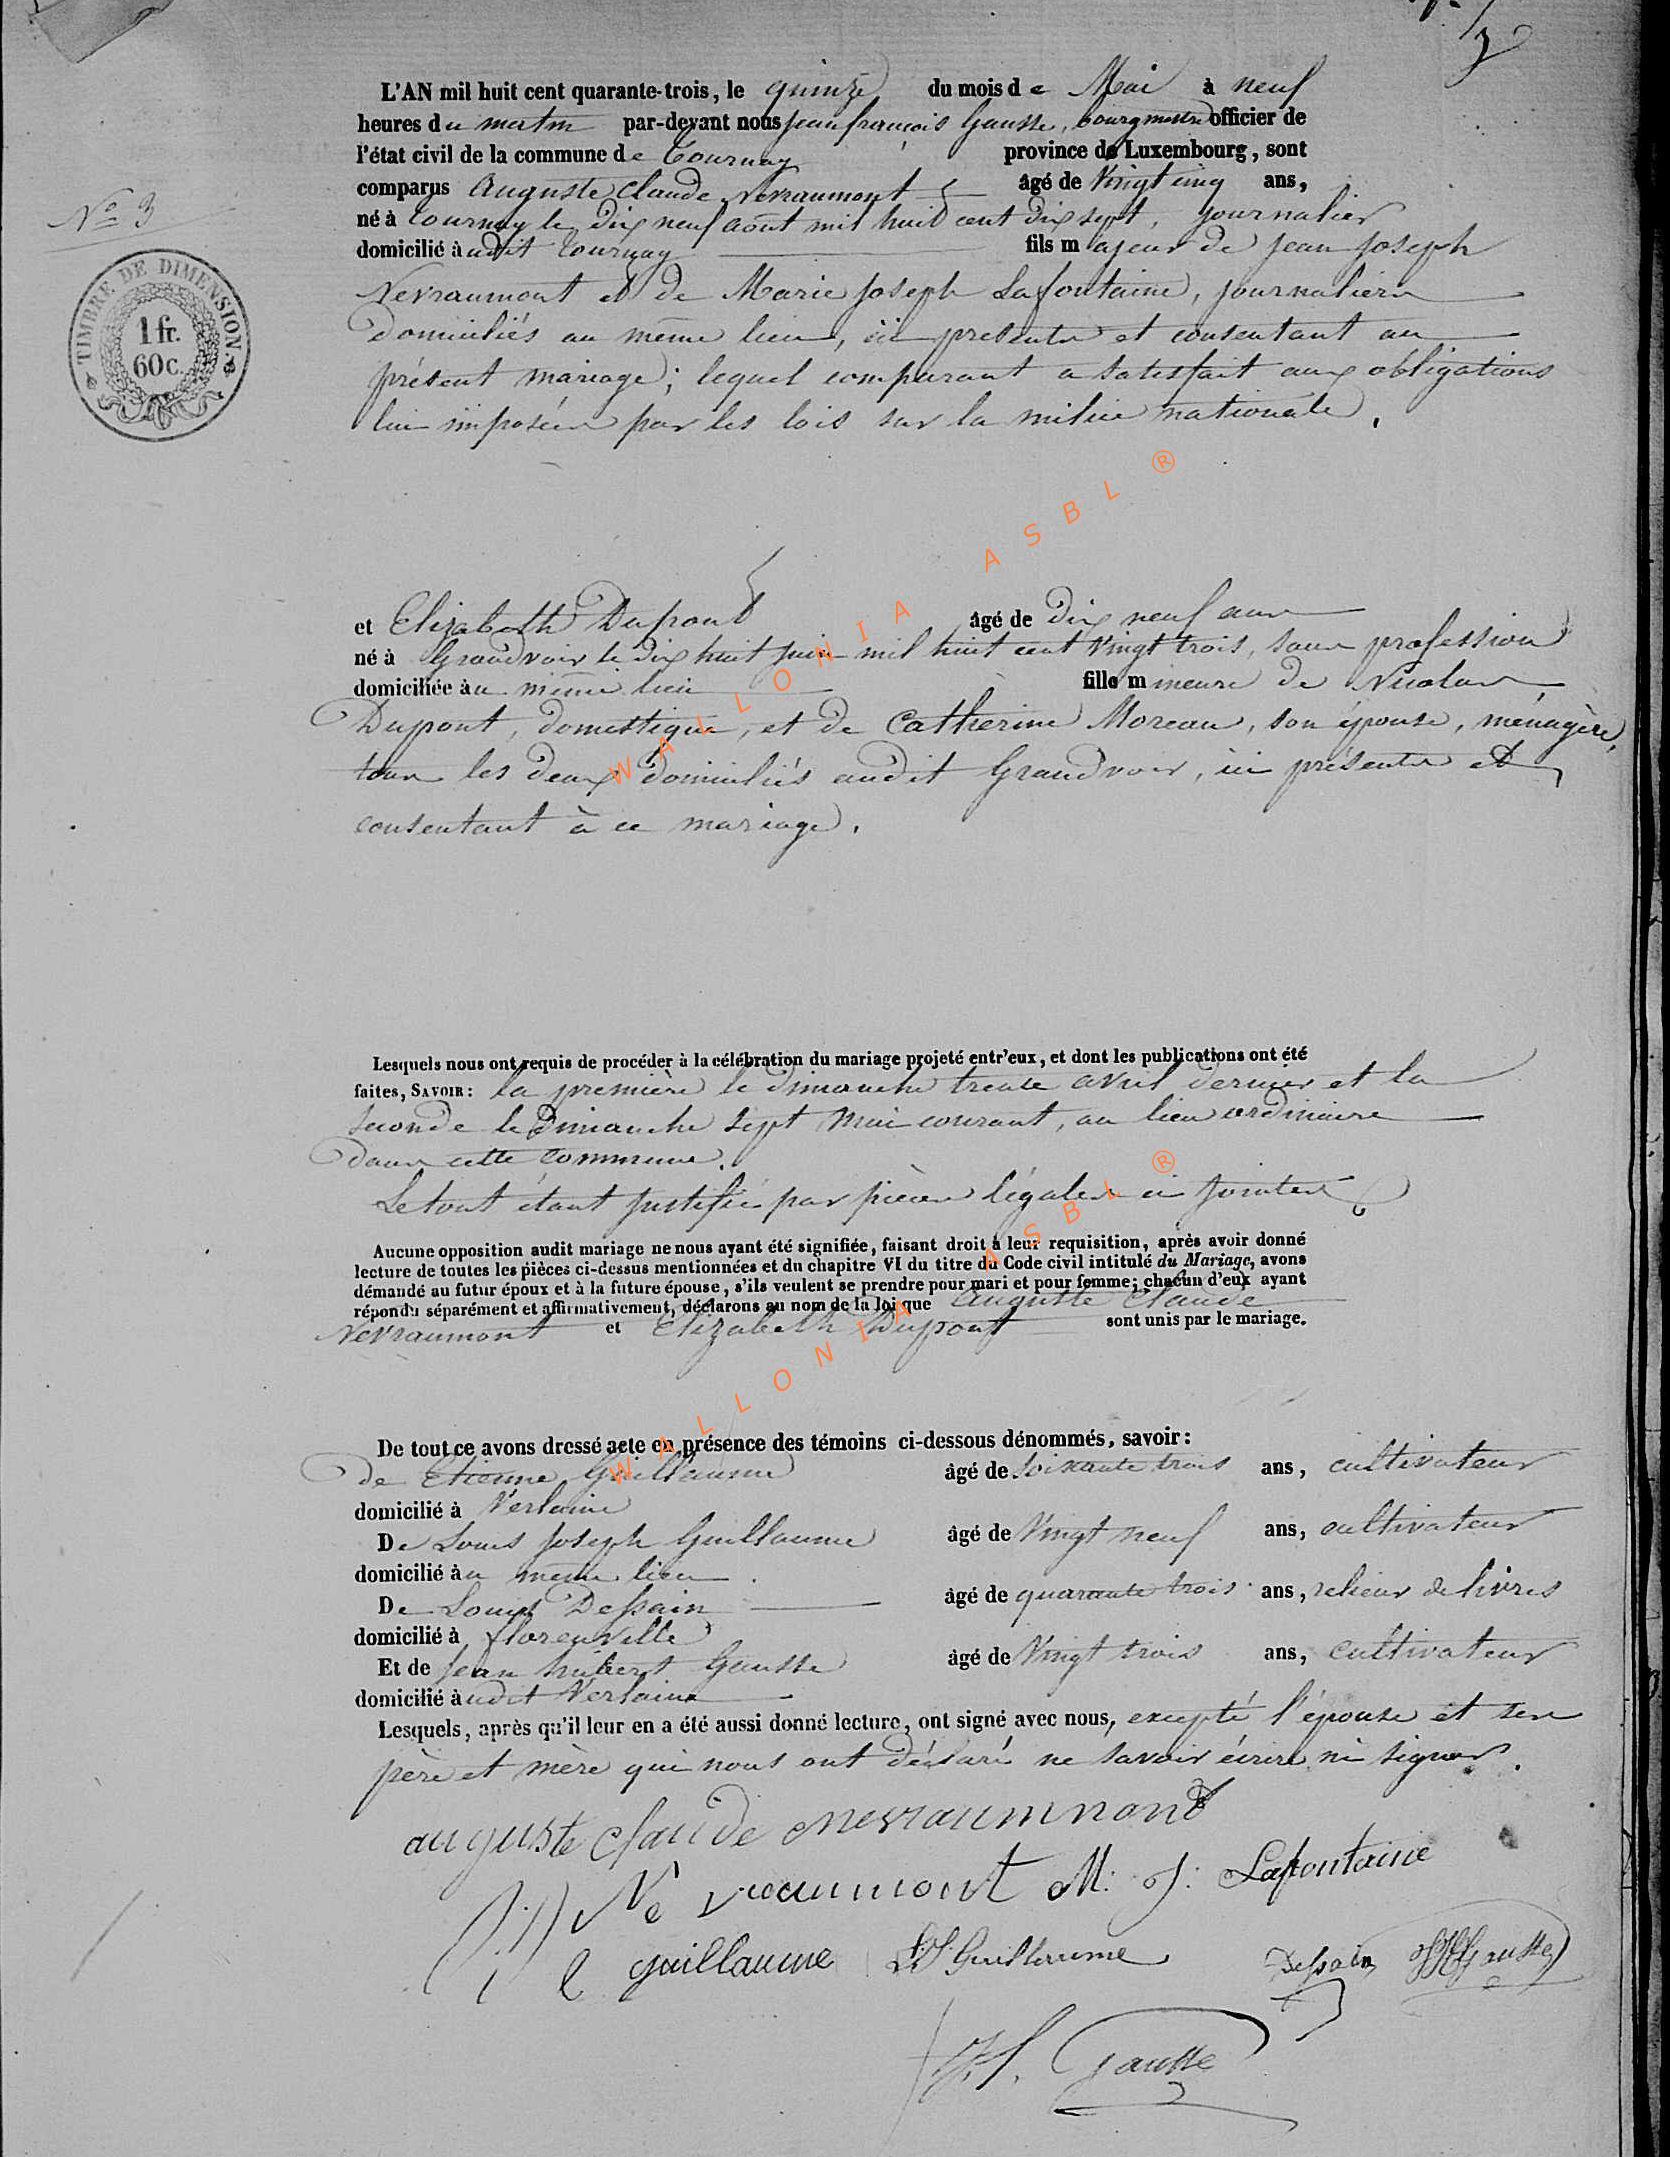 3
L'AN mil huit cent quarante-trois, le quinze du mois de Mai à neuf
heures du matin par-devant nous jean françois Gausse, bourgmestre officier de
l'état civil de la commune de Tournay province de Luxembourg, sont
comparus Auguste Claude Nevraumont âgé de Vingt cinq ans,
né à Tournay le dix neuf août mil huit cent dix sept, journalier
domicilié audit Tournay fils majeur de jean joseph
Nevraumont et de Marie joseph Lafontaine, journaliers
domiciliés au même lieu, ici présents et consentant au
présent mariage; lequel comparant a satisfait aux obligations
lui imposées par les lois sur la milice nationale.
No 3
TIMBRE DE DIMENSION.
1 fr.
60 c.
et Elizabeth Dupont âgé de Dix neuf ans
né à Grandvoir le dix huit juin mil huit cent Vingt trois, sans profession
domiciliée au même lieu fille mineure de Nicolas
Dupont, domestique, et de Catherine Moreau, son épouse, ménagère,
tous les deux domiciliés audit Grandvoir, ici présents et
consentant à ce mariage.
Lesquels nous ont requis de procéder à la célébration du mariage projeté entr'eux, et dont les publications ont été
faites, SAVOIR: la première le dimanche trente avril dernier et la
seconde le dimanche sept Mai courant, au lieu ordinaire
dans cette commune.
Le tout étant justifié par pièces légales ci jointes
Aucune opposition audit mariage ne nous ayant été signifiée, faisant droit à leur requisition, après avoir donné
lecture de toutes les pièces ci-dessus mentionnées et du chapitre VI du titre du Code civil intitulé du Mariage, avons
démandé au futur époux et à la future épouse, s'ils veulent se prendre pour mari et pour femme; chacun d'eux ayant
répondu séparément et affirmativement, déclarons au nom de la loi que Auguste Claude
Nevraumont et Elizabeth Dupont sont unis par le mariage.
De tout ce avons dressé acte en présence des témoins ci-dessous dénommés, savoir:
de Etienne Guillaume âgé de soixante trois ans, cultivateur
domicilié à Verlaine
De Louis joseph Guillaume âgé de Vingt neuf ans, cultivateur
domicilié au même lieu.
De Louis Dessain âgé de quarante trois ans, relieur de livres
domicilié à florenville
Et de jean hubert Gausse âgé de Vingt trois ans, cultivateur
domicilié audit Verlaine
Lesquels, après qu'il leur en a été aussi donné lecture, ont signé avec nous, excepté l'épouse et ses
père et mère qui nous ont déclaré ne savoir écrire ni signer.
auguste claude nevraumnont
J. J. Névraumont M: J: Lafontaine
E guillaume L J Guillaume Dessain JH Gausse
J. f. Gausse
WALLONIA ASBL ®
WALLONIA ASBL ®